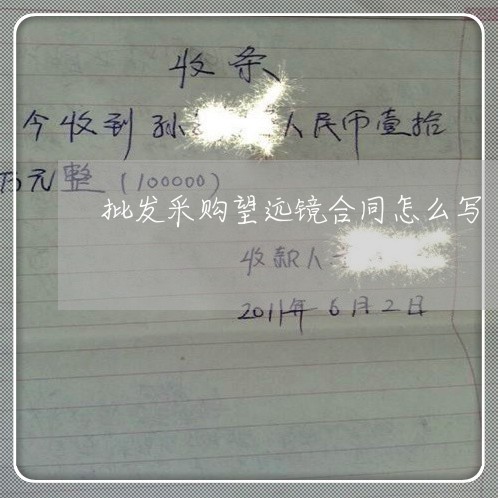 收条
今收到孙人民币壹拾
万元整(100000)
批发采购望远镜合同怎么写
收款人
2011年6月2日